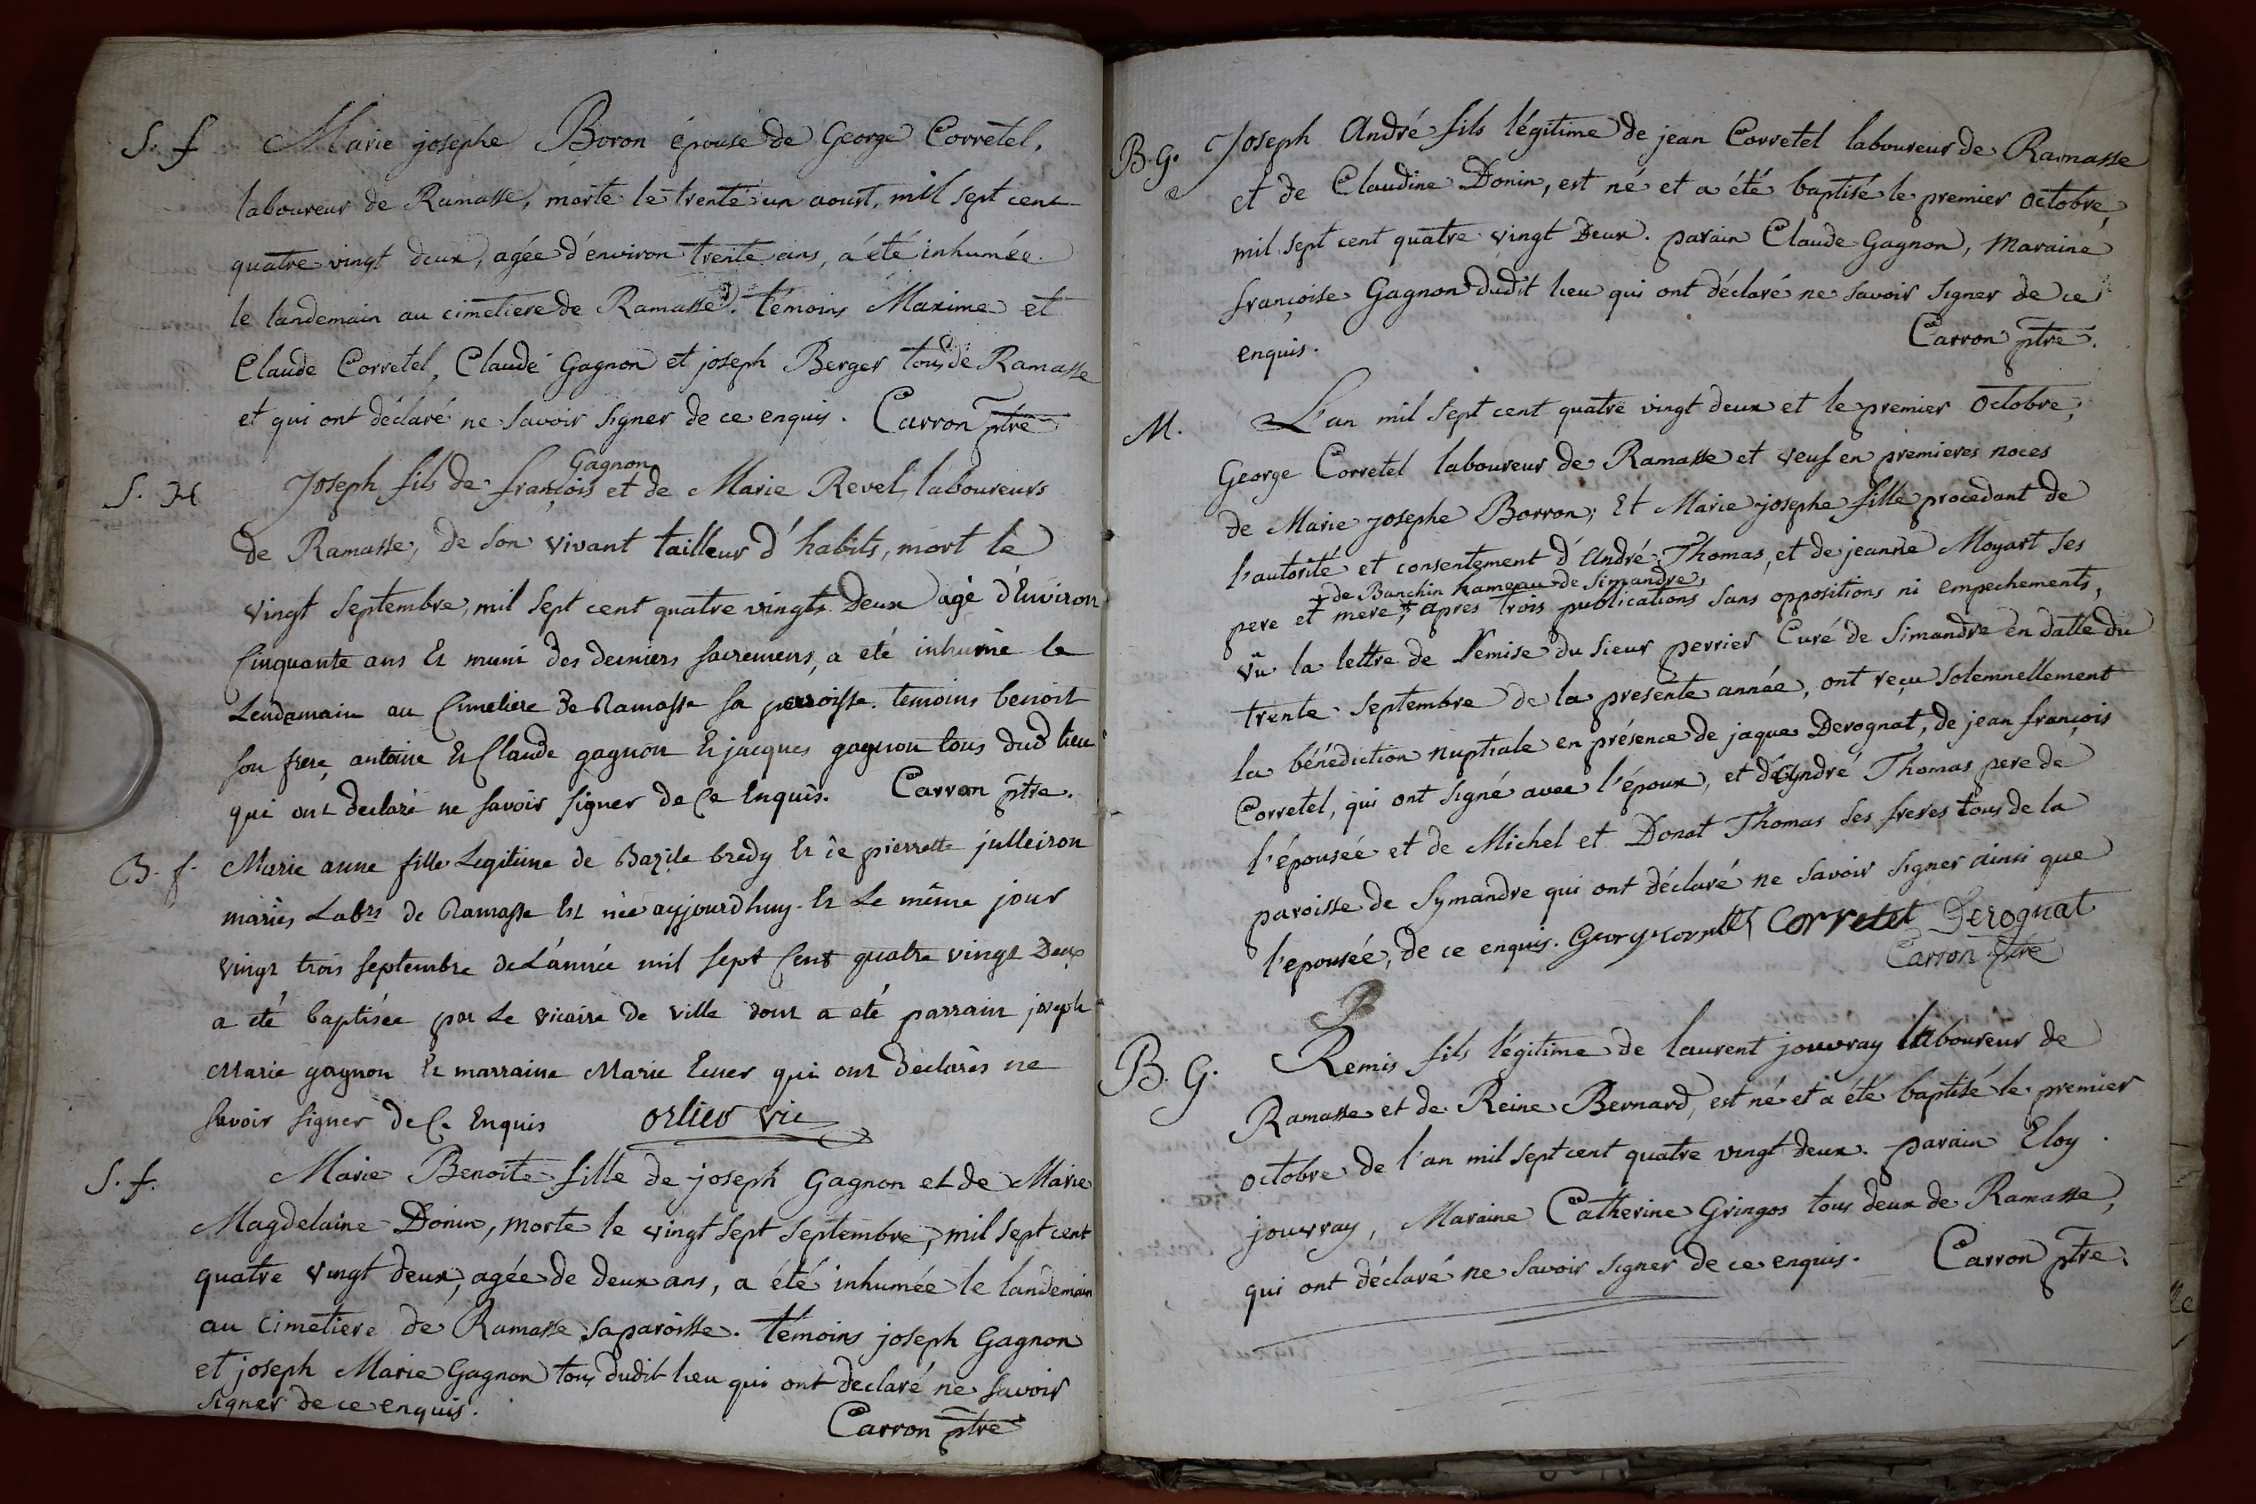 S. f Marie josephe Boron épouse de George Corretel,
laboureur de Ramasse, morte le trente un aoust, mil sept cent
quatre vingt deux, agée d'environ trente ans, a été inhumée
le landemain au cimetiere de Ramasse. témoins Maxime et
Claude Corretel, Claude Gagnon et joseph Berger tous de Ramasse
et qui ont déclaré ne savoir signer de ce enquis. Carron ptre
Gagnon
S. H Joseph fils de françois et de Marie Revel, laboureurs
de Ramasse, de son vivant tailleur d'habits, mort le
vingt septembre, mil sept cent quatre vingts Deux agé d'Environ
Cinquante ans Et muni des derniers sacremens, a eté inhumé le
Lendemain au Cimetiere De Ramasse sa parroisse. temoins benoit
son frere, antoine Et Claude gagnon Et jacques gagnon tous dud lieu
qui ont declaré ne savoir signer de Ce Enquis. Carron ptre.
B. f. Marie anne fille Legitime de Bazile bredy Et de pierrette julleiron
mariés Labrs de Ramasse Est née aujourdhuy Et Le même jour
vingt trois septembre de L'année mil sept Cent quatre vingt Deux
a eté baptisée par Le vicaire de ville dont a eté parrain joseph
Marie gagnon Et marraine Marie qui ont declarés ne
savoir signer de Ce Enquis orlier vic
S. f. Marie Benoite fille de joseph Gagnon et de Marie
Magdelaine Donin, morte le vingt sept septembre, mil sept cent
quatre vingt deux, agée de deux ans, a été inhumée le landemain
au cimetiere de Ramasse sa paroisse. témoins joseph Gagnon
et joseph Marie Gagnon tous dudit lieu qui ont déclaré ne savoir
signer de ce enquis.
Carron ptre
B. G. Joseph André fils légitime de jean Corretel laboureur de Ramasse
et de Claudine Donin, est né et a été baptisé le premier octobre,
mil sept cent quatre vingt Deux. parain Claude Gagnon, Maraine
françoise Gagnon dudit lieu qui ont déclaré ne savoir signer de ce
enquis. Carron ptre.
M. L'an mil sept cent quatre vingt deux et le premier octobre,
George Corretel laboureur de Ramasse et veuf en premieres noces
de Marie josephe Borron; Et Marie josephe fille procedant de
l'autorité et consentement d'André Thomas, et de jeanne Moyart ses
+ de Banchin hameau de Simandre,
pere et mere, + apres trois publications sans oppositions ni empechements,
vû la lettre de remise du sieur perrier Curé de Simandre en datte du
trente septembre de la presente année, ont reçu solemnellement
la bénédiction nuptiale en présence de jaque Derognat, de jean françois
Corretel, qui ont signé avec l'époux, et d'André Thomas pere de
l'épousée et de Michel et Donat Thomas ses freres tous de la
paroisse de Symandre qui ont déclaré ne savoir signer ainsi que
l'epousée, de ce enquis. George Corretel Corretel Derognat
Carron ptre
B. G. Remis fils légitime de laurent jouvray laboureur de
Ramasse et de Reine Bernard, est né et a été baptisé le premier
octobre de l'an mil sept cent quatre vingt deux. parain Eloy
jouvray, Maraine Catherine Gringos tous deux de Ramasse,
qui ont déclaré ne savoir signer de ce enquis. Carron ptre.